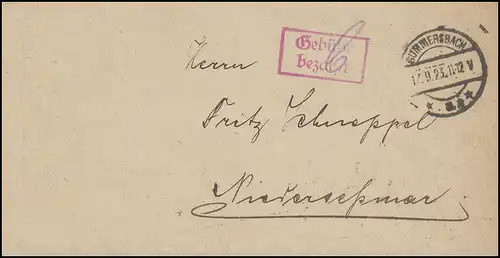 Gebühr
bezahlt
6
GUMMERSBACH
17.9.23.11-12 V
* a *
Herrn
Fritz Schneppel
Niederseßmar